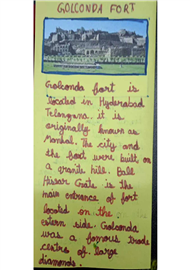 GOLCONDA FORT
Golconda fort is
located in Hyderabad
Telangana. it is
originally known as
Mankal. The city and
the foot were built on
a granite hill. Bala
Hissar Gate is the
main entrance of fort
located on the
estern side. Golconda
was a famous trade
centre of large
diamonds.